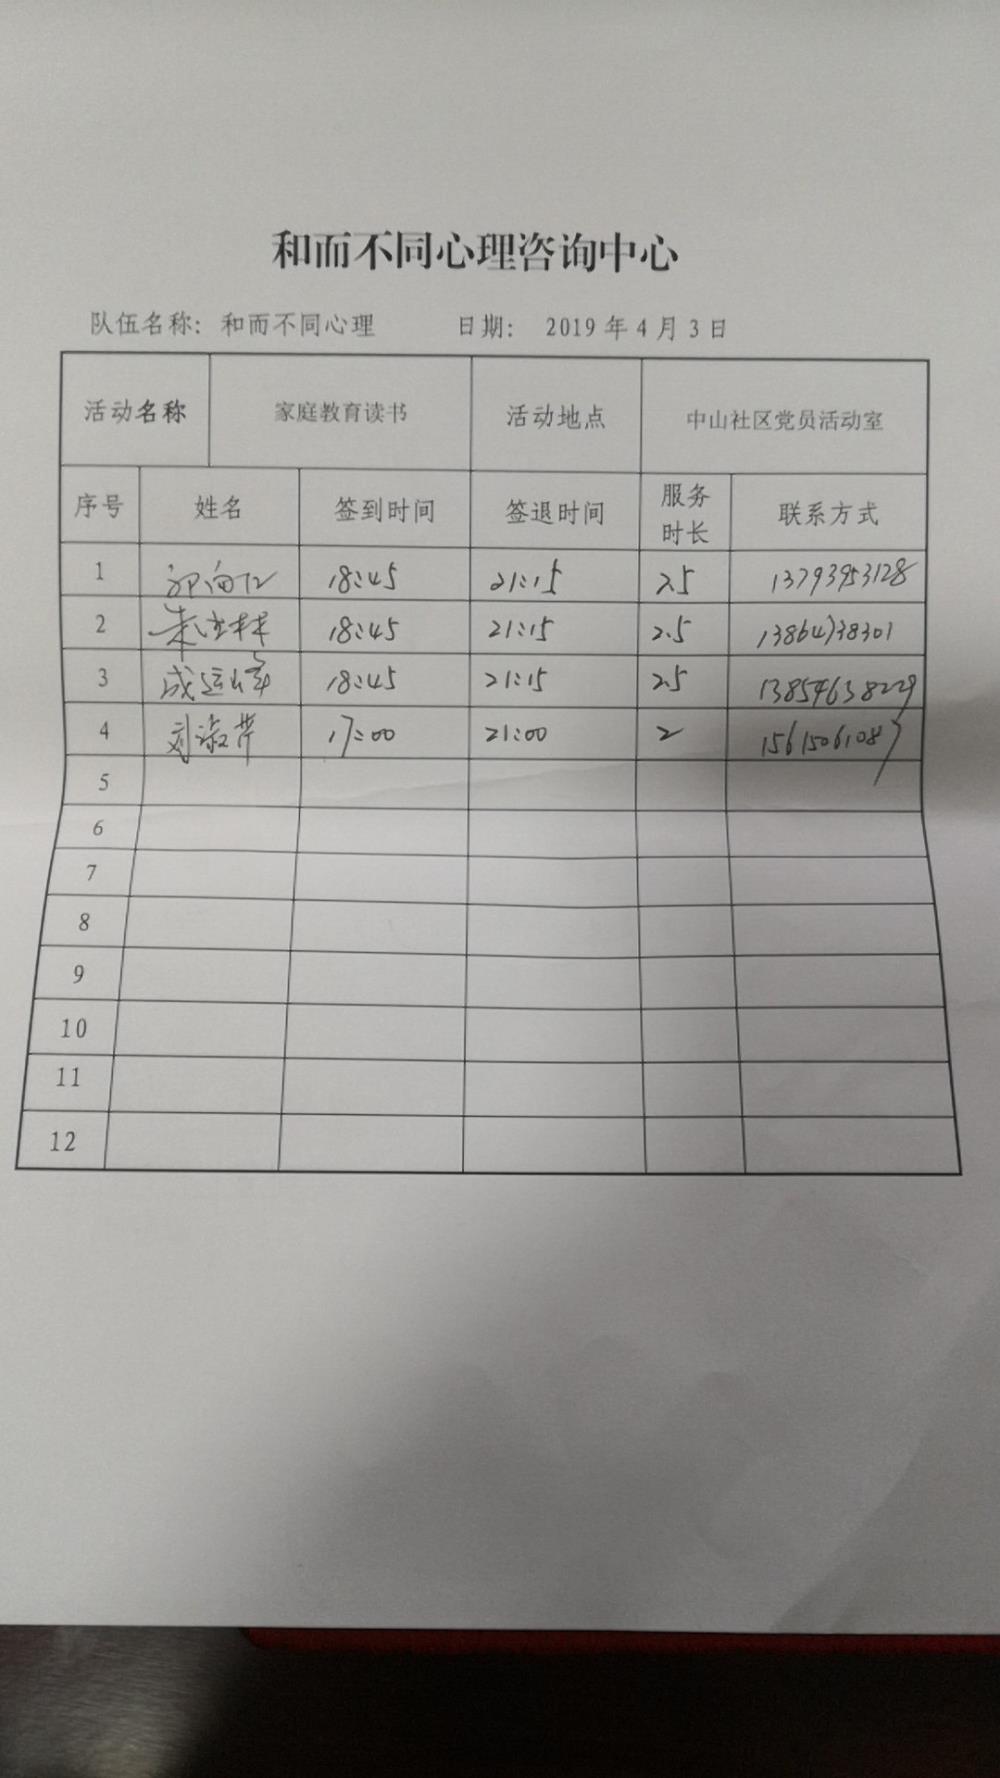 和而不同心理咨询中心
队伍名称: 和而不同心理 日期: 2019年4月3日
活动名称 家庭教育读书 活动地点 中山社区党员活动室
序号 姓名 签到时间 签退时间 服务时长 联系方式
1 18:45 21:15 2.5 13793953128
2 18:45 21:15 2.5 13864738301
3 成运峰 18:45 21:15 2.5 13854638229
4 刘淑芹 17:00 21:00 2 15615061087
5
6
7
8
9
10
11
12